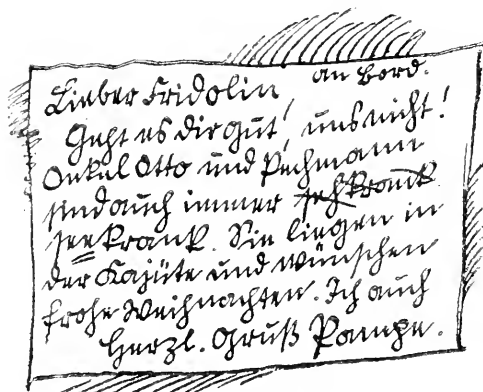 an Bord.
Lieber Fridolin,
Geht es dir gut, uns nicht!
Onkel Otto und Pechmann
sind auch immer sehkrank
seekrank. Sie liegen in
der Kajüte und wünschen
frohe Weihnachten. Ich auch
Herzl. Gruß Pampe.